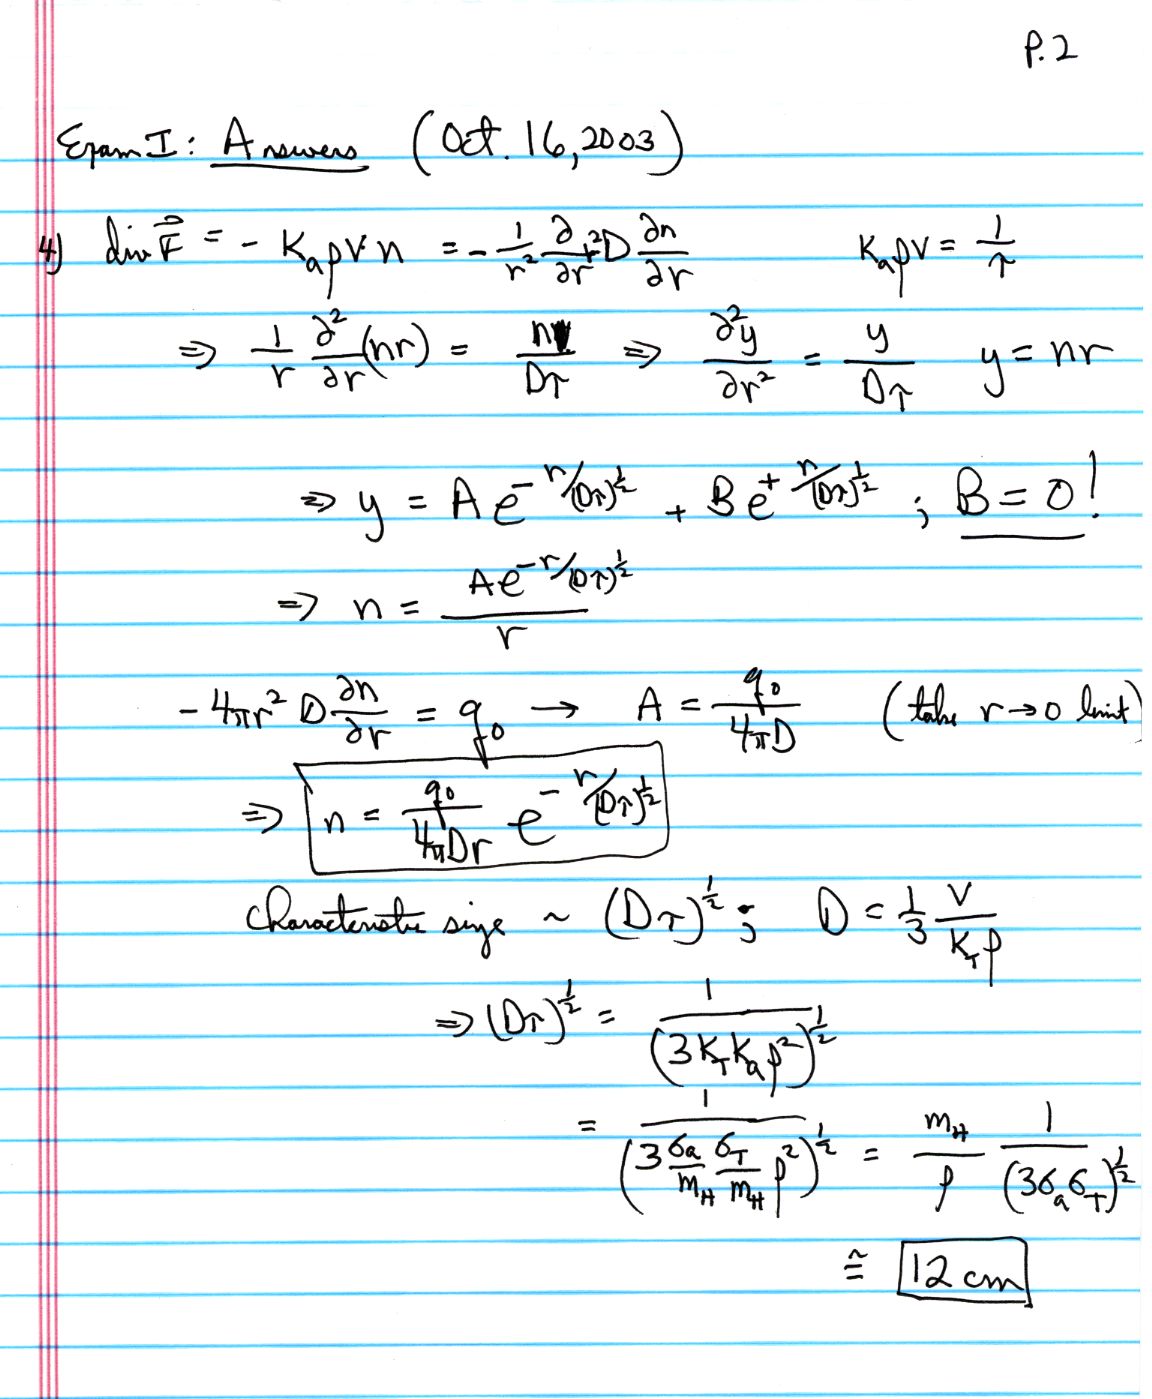 P. 2
Exam I: Answers (Oct. 16, 2003)
4) div F⃗ = - K_a ρ v n = - 1/r² ∂/∂r r² D ∂n/∂r    K_a ρ v = 1/τ
⇒ 1/r ∂²/∂r (nr) = n/Dτ ⇒ ∂²y/∂r² = y/Dτ    y = nr
⇒ y = A e^{-r/(Dτ)^{1/2}} + B e^{+r/(Dτ)^{1/2}} ; B = 0!
⇒ n = A e^{-r/(Dτ)^{1/2}} / r
- 4πr² D ∂n/∂r = q₀ → A = q₀/4πD (take r → 0 limit)
⇒ n = q₀/4πDr e^{-r/(Dτ)^{1/2}}
Characteristic size ~ (Dτ)^{1/2} ; D = 1/3 v/K_T ρ
⇒ (Dτ)^{1/2} = 1/(3 K_T K_a ρ²)^{1/2}
= 1/(3 σ_a/m_H σ_T/m_H ρ²)^{1/2} = m_H/ρ 1/(3σ_a σ_T)^{1/2}
≅ 12 cm